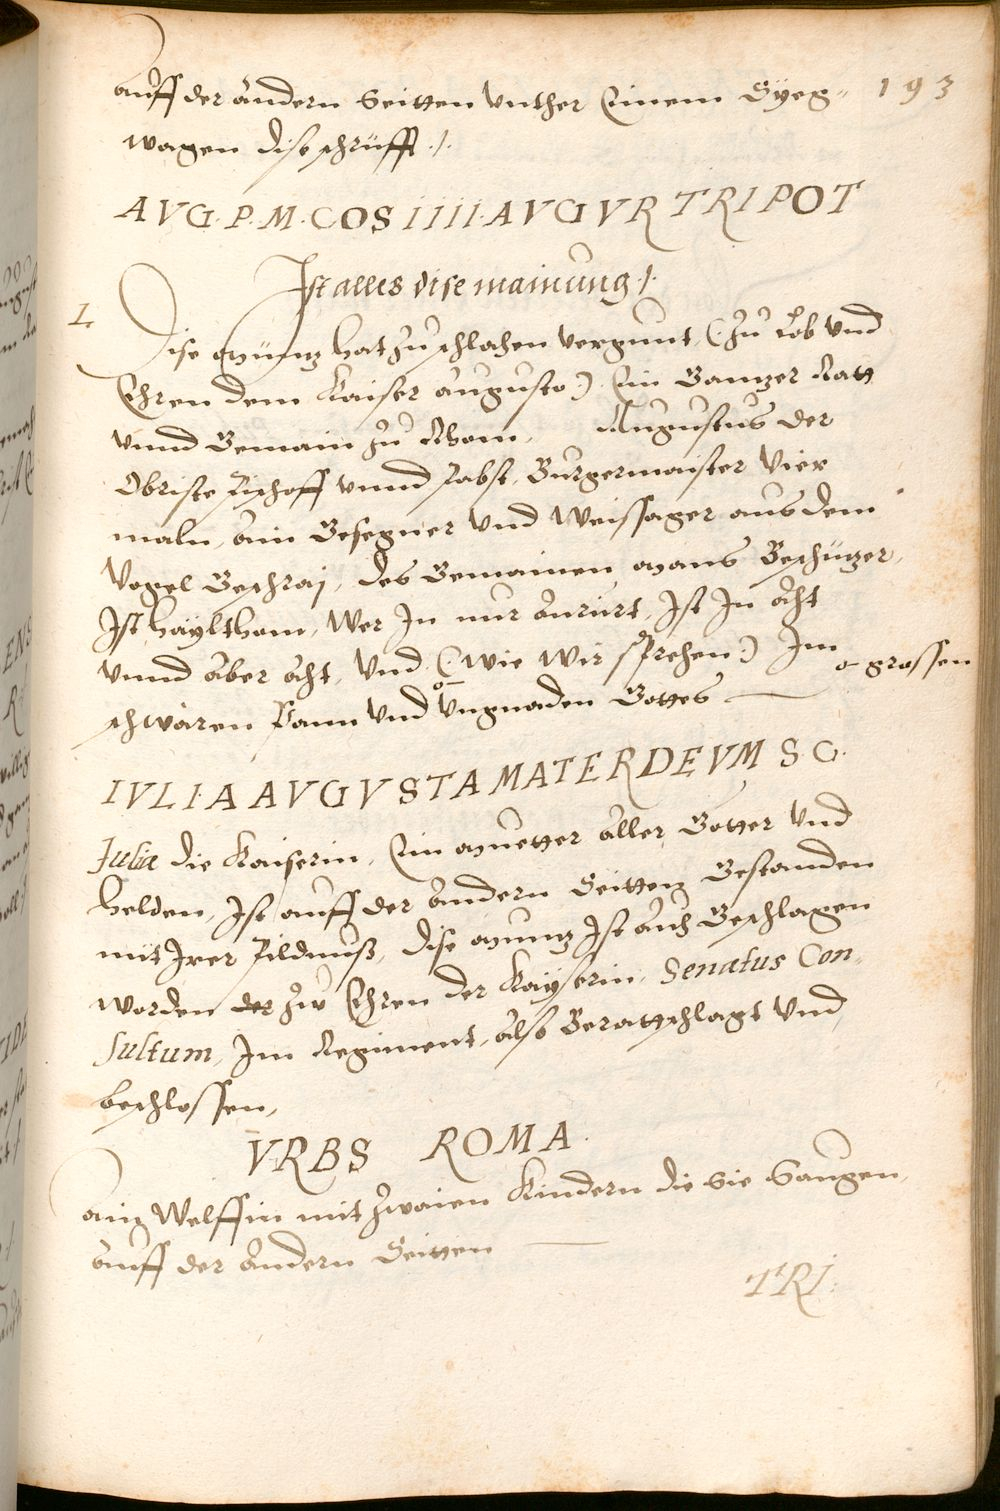 193
auff der andern seitten vnther Einem Syeg-
wagen dise schrüfft ./.
AVG·P·M·COS IIII·AVGVR TRI POT
Ist alles dise mainung ./.
L
Dise Müntz hat zu schlahen vergunt, (: zu Lob vnd
Ehren dem Kaiser Augusto :) Ein Gantzer Ratt
vnnd Gemain zu Rhom, Augustus der
Obriste Pischoff vnnd Pabst, Burgermaister Vier
maln, ain Gesegner vnd Weissager aus dem
Vogel Geschraj, des Gemainen Mans Beschützer,
Ist haylthom, Wer In nur anrürt, Ist In Acht
vnnd Aber Acht, vnd (: wie Wir sprechen :) Im
o- grossen
schwären Pann vnd o- vngnaden Gottes
IVLIA AVGVSTA MATER DEVM S C·
Julia die Kaiserin, Ein Muetter aller Götter vnd
Helden, Ist auff der andern Seitten Gestanden
mit Irer Pildnuß, dise Müntz Ist auch Geschlagen
worden der zw Ehren der Kayserin, Senatus Con-
sultum, Im Regiment, also Berattschlagt vnd
beschlossen,
VRBS ROMA·
Ain Welffin mit zwaien Kindern die sie Saugen,
auff der andern Seitten
TRI·